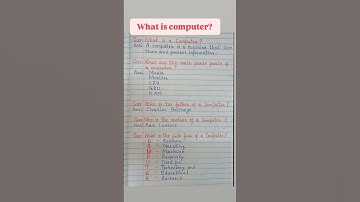 What is computer?
Que: What is a Computer?
Ans: A computer is a machine that can
store and process information.
Que: What are the main parts
of a computer?
Ans: Mouse
Monitor
CPU
GPU
RAM
Que: Who is the father of a Computer?
Ans: Charles Babbage
Que: Who is the mother of a Computer?
Ans: Ada Lovelace
Que: What is the full form of a Computer?
C - Common
O - Operating
M - Machine
P - Purposely
U - Used for
T - Technology and
E - Educational
R - Research